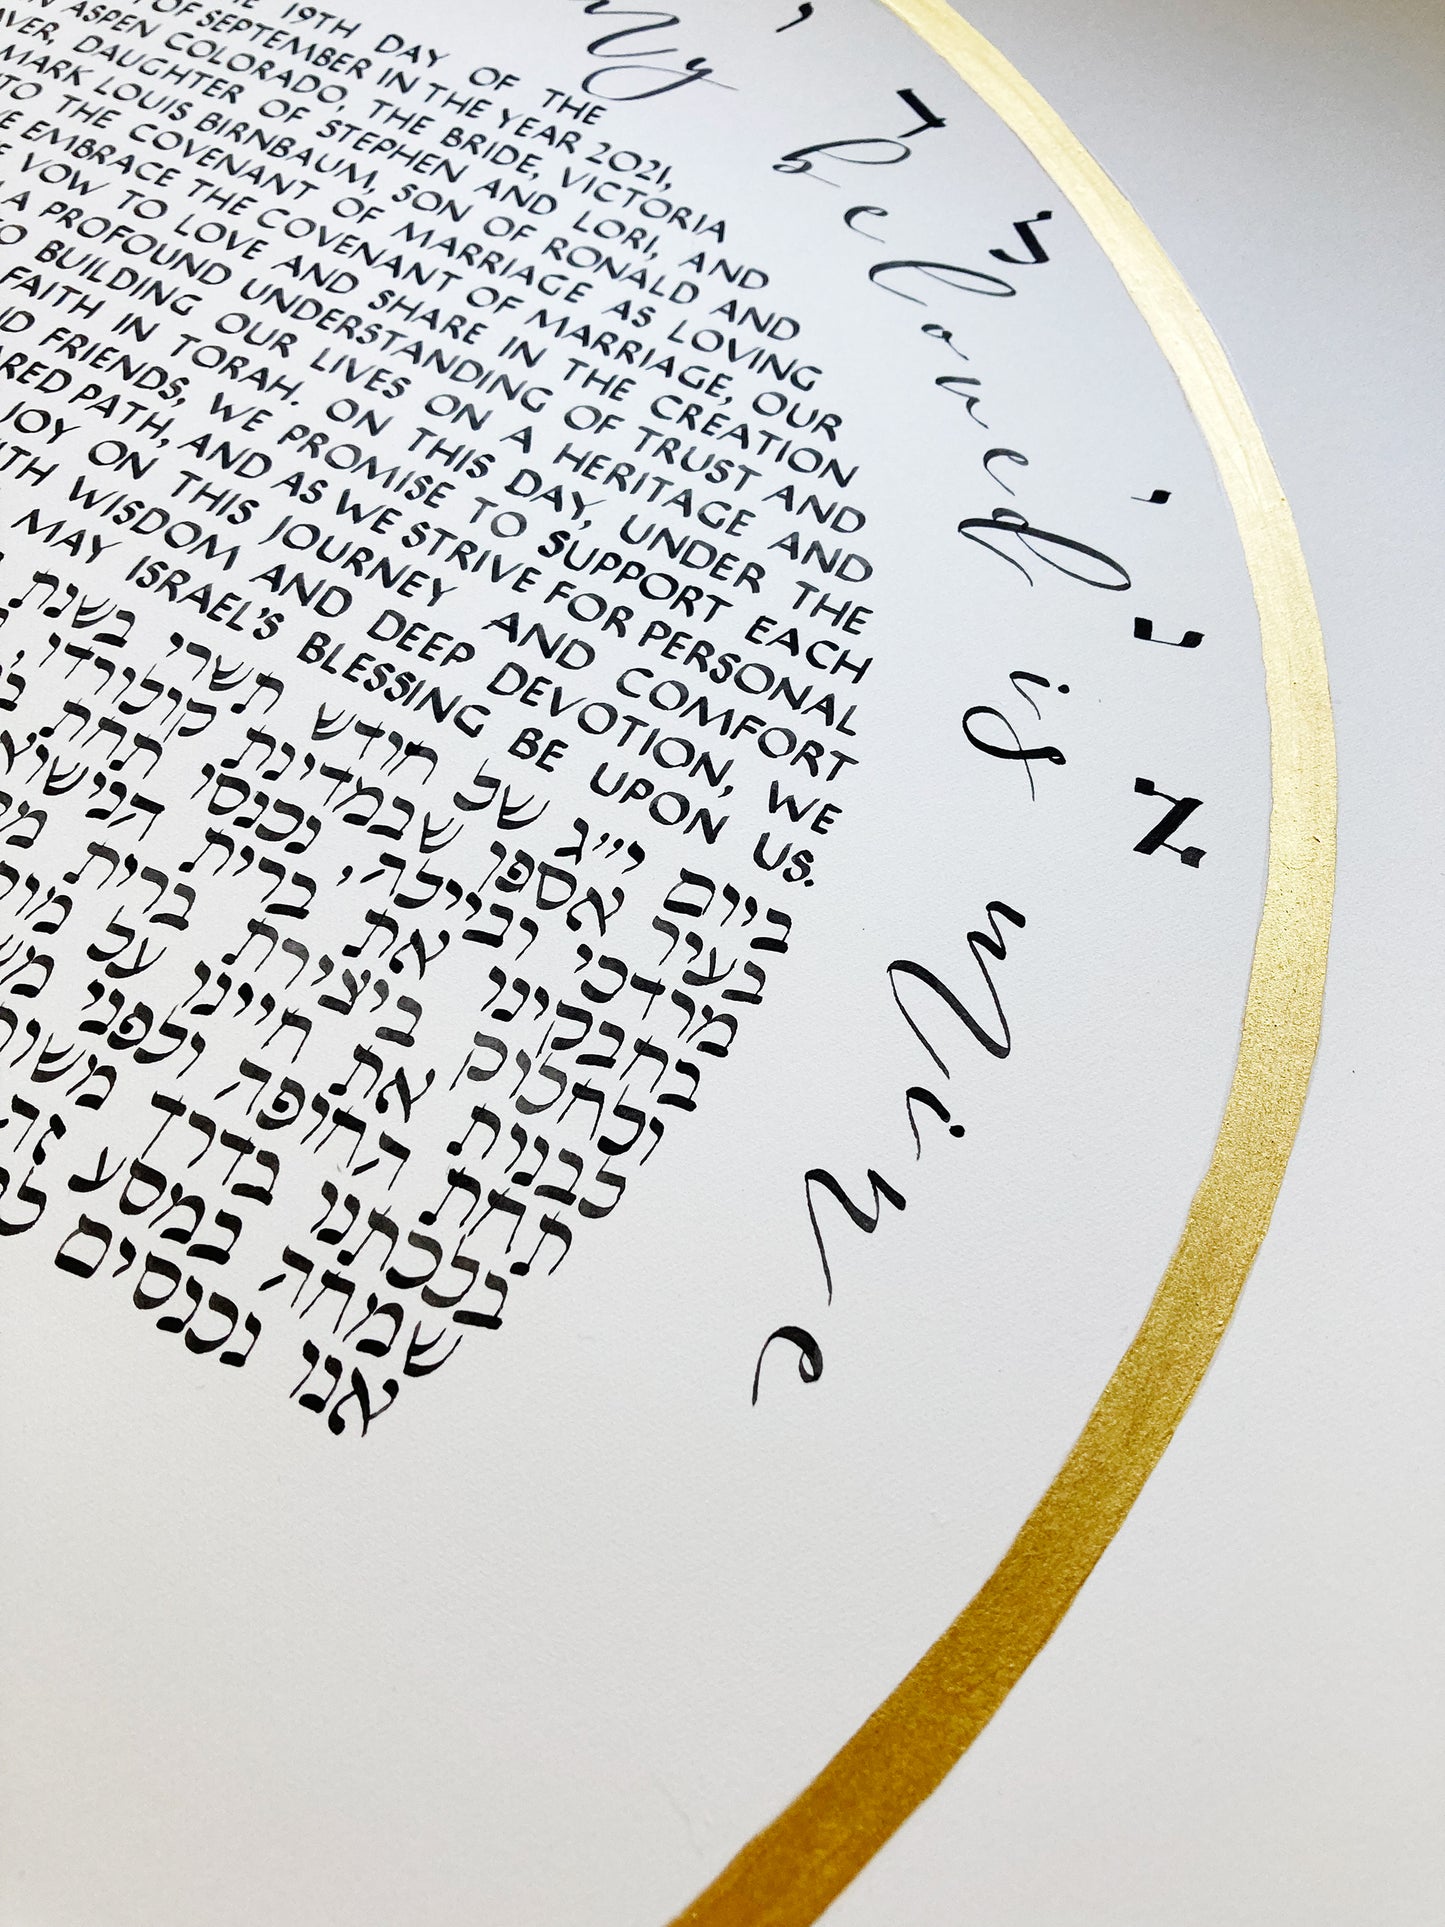 19TH DAY OF THE
OF SEPTEMBER IN THE YEAR 2021,
ASPEN COLORADO, THE BRIDE, VICTORIA
DAUGHTER OF STEPHEN AND LORI, AND
MARK LOUIS BIRNBAUM, SON OF RONALD AND
TO THE COVENANT OF MARRIAGE AS LOVING
EMBRACE THE COVENANT OF MARRIAGE, OUR
VOW TO LOVE AND SHARE IN THE CREATION
A PROFOUND UNDERSTANDING OF TRUST AND
BUILDING OUR LIVES ON A HERITAGE AND
FAITH IN TORAH. ON THIS DAY, UNDER THE
FRIENDS, WE PROMISE TO SUPPORT EACH
PATH, AND AS WE STRIVE FOR PERSONAL
JOY ON THIS JOURNEY AND COMFORT
WISDOM AND DEEP DEVOTION, WE
MAY ISRAEL'S BLESSING BE UPON US.
ביום י״ג של חודש תשרי בשנת
בעיר אספן שבמדינת קולורדו,
מרדכי וביילה, נכנסו תחת
בחבקינו את ברית
ולחלוק ביצירת ברית
לבנות את חיינו על
תחת החופה ולפני
בלכתנו בדרך
שמחה במסע זה
אנו נכנסים
My beloved is Mine